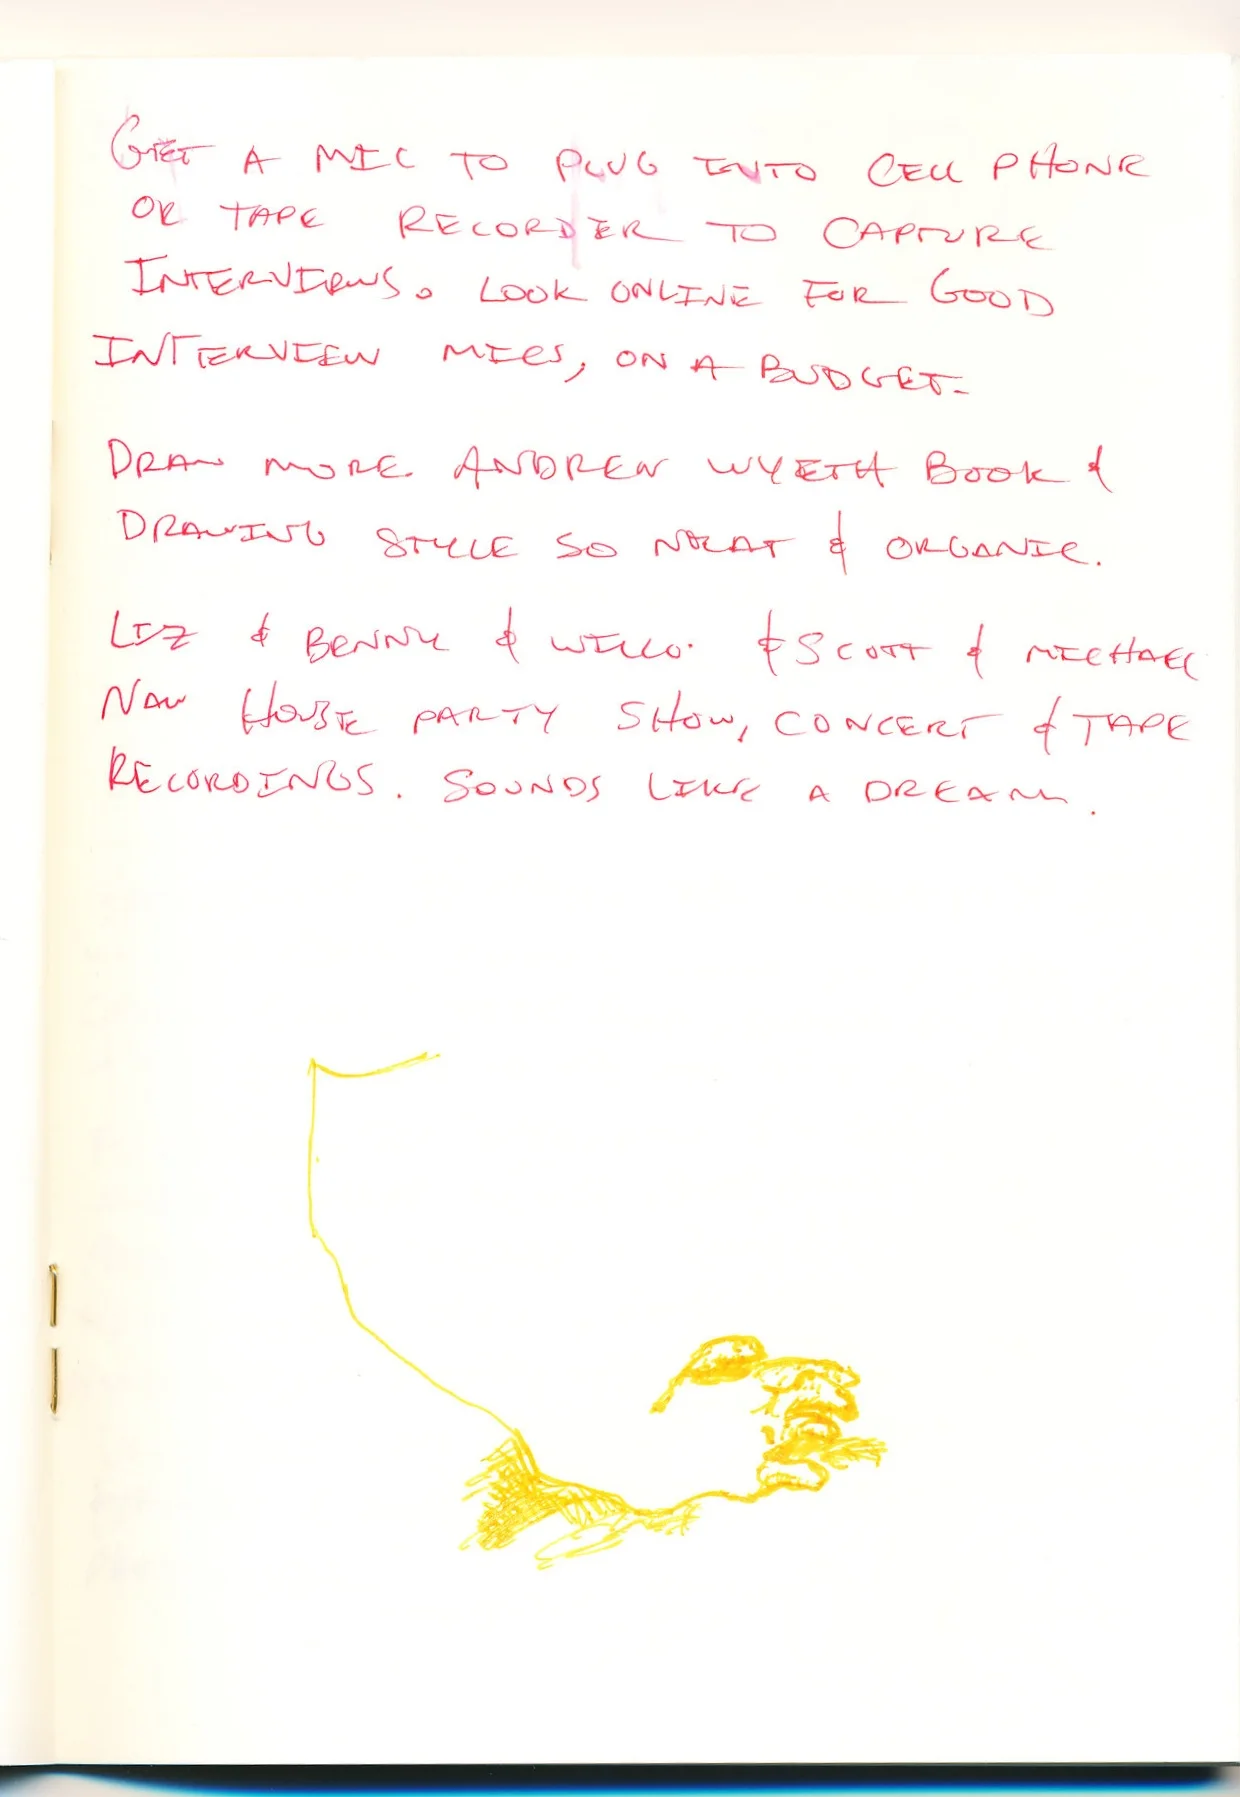 GET A MIC TO PLUG INTO CELL PHONE
OR TAPE RECORDER TO CAPTURE
INTERVIEWS. LOOK ONLINE FOR GOOD
INTERVIEW MICS, ON A BUDGET.
DRAW MORE. ANDREW WYETH BOOK &
DRAWING STYLE SO NEAT & ORGANIC.
LIZ & BENNY & WILLO. & SCOTT & MICHAEL
NAU HOUSE PARTY SHOW, CONCERT & TAPE
RECORDINGS. SOUNDS LIKE A DREAM.